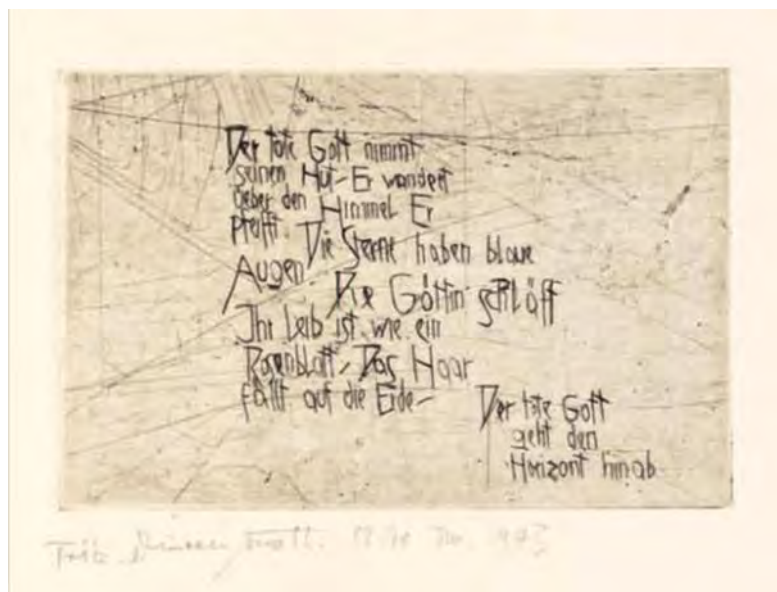 Der tote Gott nimmt
seinen Hut- Er wandert
ueber den Himmel Er
pfeifft. Die Sterne haben blaue
Augen Die Göttin schläft
Ihr Leib ist wie ein
Rosenblatt- Das Haar
fällt auf die Erde-
Der tote Gott
geht den
Horizont hinab
Fritz